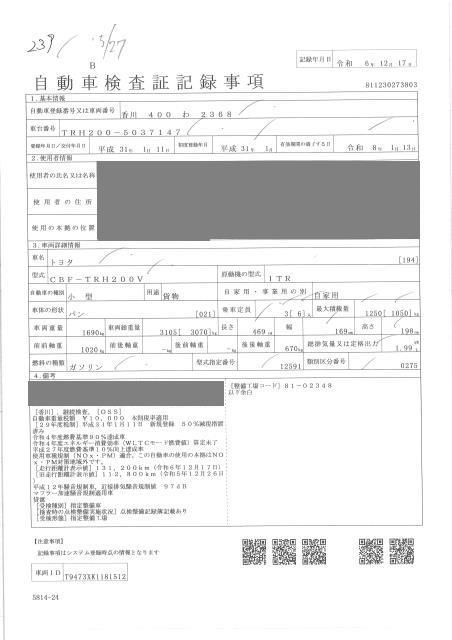 239 / 5/27
記録年月日 令和 6年12月17日
B
自動車検査証記録事項
811230273803
1.基本情報
自動車登録番号又は車両番号 香川 400 わ 2368
車台番号 TRH200-5037147
登録年月日/交付年月日 平成 31年 1月 11日 初度登録年月 平成 31年 1月 有効期間の満了する日 令和 8年 1月13日
2.使用者情報
使用者の氏名又は名称
使用者の住所
使用の本拠の位置
3.車両詳細情報
車名 トヨタ [194]
型式 CBF-TRH200V 原動機の型式 1TR
自動車の種別 小型 用途 貨物 自家用・事業用の別 自家用
車体の形状 バン [021] 乗車定員 3[ 6]人 最大積載量 1250[ 1050]kg
車両重量 1690kg 車両総重量 3105[ 3070]kg 長さ 469cm 幅 169cm 高さ 198cm
前前軸重 1020kg 前後軸重 -kg 後前軸重 -kg 後後軸重 670kg 総排気量又は定格出力 1.99L
燃料の種類 ガソリン 型式指定番号 12591 類別区分番号 0275
4.備考
[整備工場コード] 81-02348
以下余白
[香川], 継続検査, [OSS]
自動車重量税額 ¥10,000 本則税率適用
[29年度税制] 平成31年1月11日 新規登録 50%減税措置
済み
令和4年度燃費基準90%達成車
令和4年度エネルギー消費効率 (WLTCモード燃費値) 算定未了
平成27年度燃費基準10%向上達成車
使用車種規制 (NOx・PM) 適合, この自動車の使用の本拠はNO
x・PM対策地域外です。
[走行距離計表示値] 131,200km (令和6年12月17日)
[旧走行距離計表示値] 112,800km (令和5年12月26日
)
平成12年騒音規制車, 近接排気騒音規制値 97dB
マフラー加速騒音規制適用車
貸渡
[受検種別] 指定整備車
[検査時の点検整備実施状況] 点検整備記録簿記載あり
[受検形態] 指定整備工場
【注意事項】
記録事項はシステム登録時点の情報となります
車両ID T9473XK1181512
5814-24